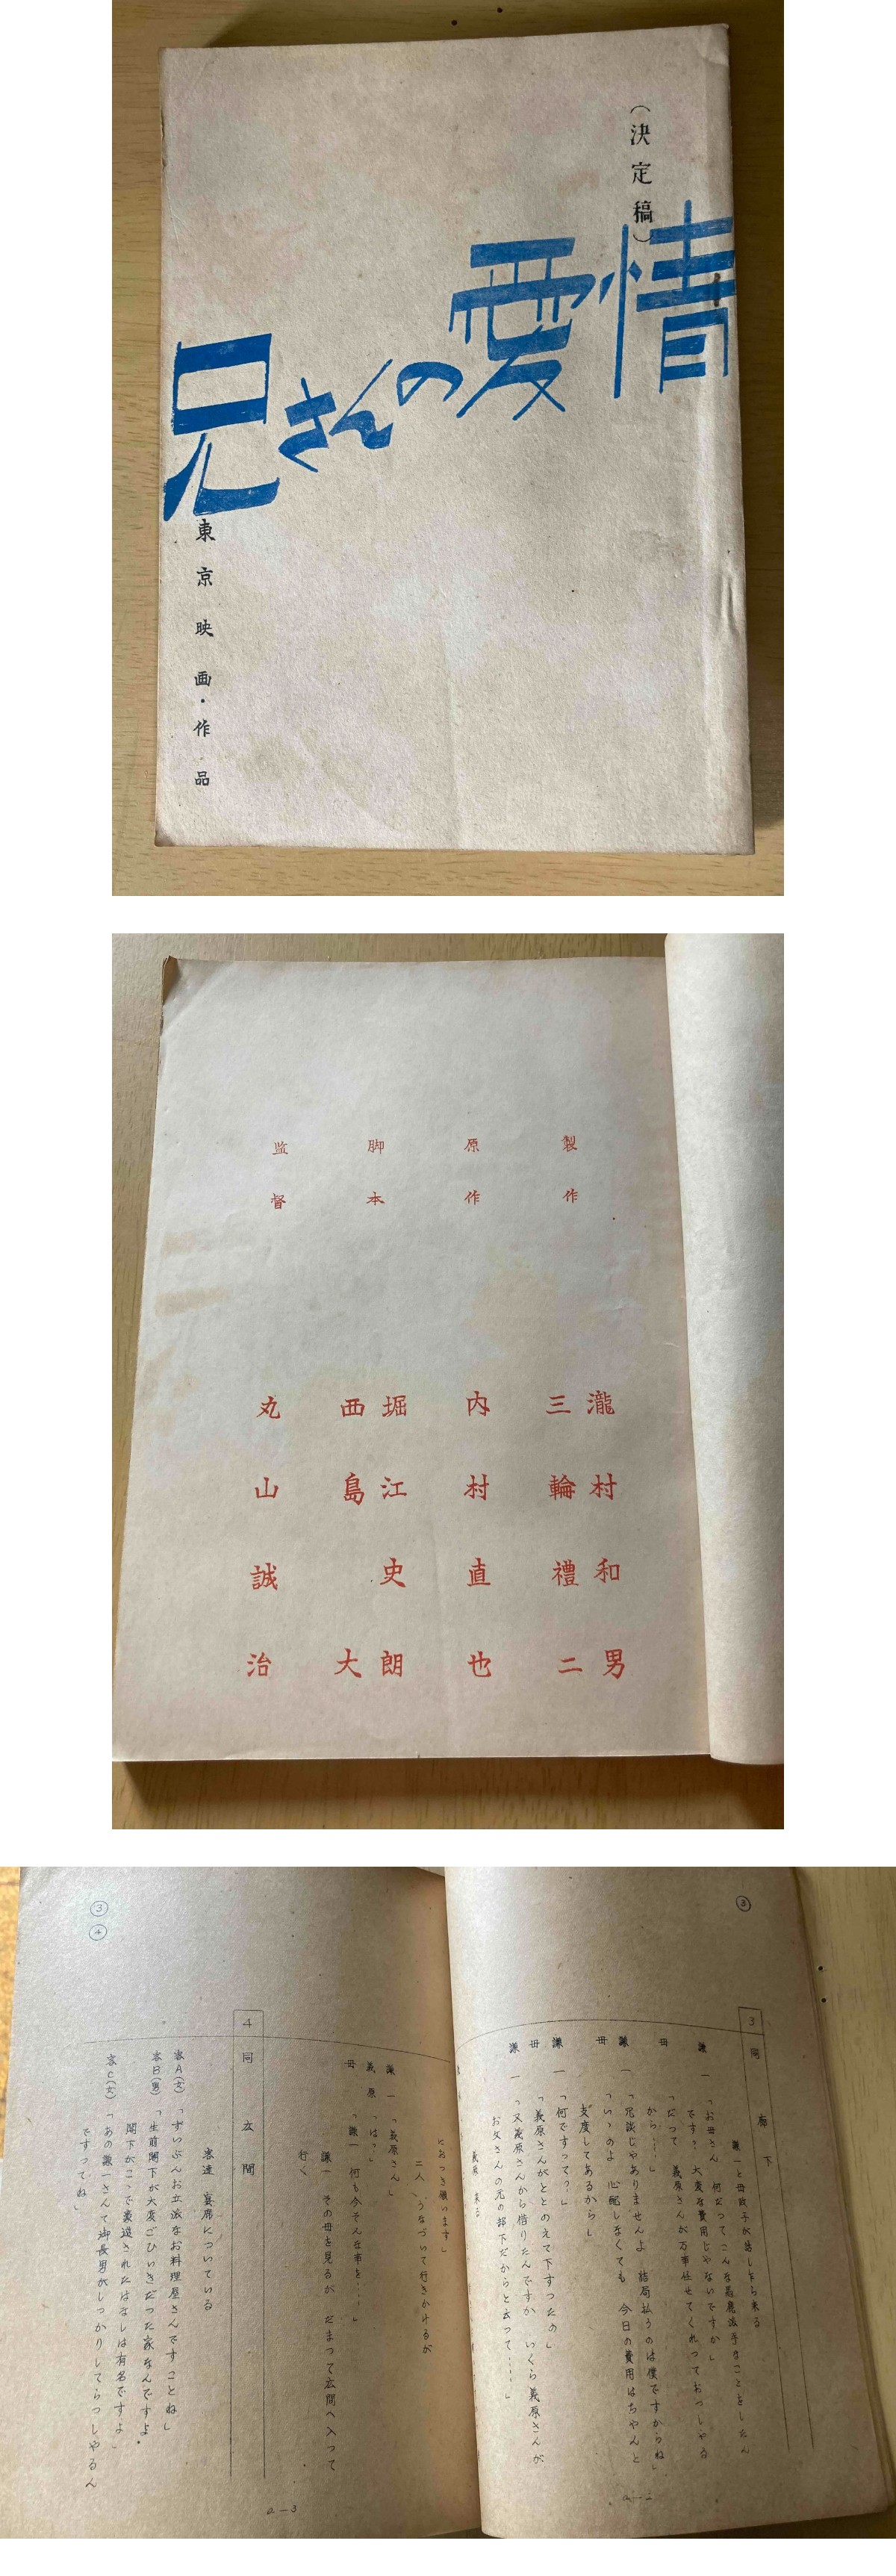 (決定稿)
兄さんの愛情
東京映画・作品
製作
瀧村和男
三輪禮二
原作
内村直也
脚本
堀江史朗
西島大
監督
丸山誠治
③
3 同 廊下
謙一と母政子が話し乍ら来る
謙一「お母さん 何だってこんな派手なことをしたん
です? 大変な費用じゃないですか」
母「だって 義原さんが万事任せてくれっておっしゃる
から……」
謙一「冗談じゃありませんよ 結局払うのは僕ですからね」
母「いゝのよ 心配しなくても 今日の費用はちゃんと
支度してあるから」
謙一「何ですって?」
母「義原さんがととのえて下すったの」
謙一「又義原さんから借りたんですか いくら義原さんが
お父さんの元の部下だからと云って……」
義原 来る
a—2
③
④
におつき願います」
二人 うなづいて行きかけるが
謙一「義原さん」
義原「は?」
母「謙一 何も今そんな事を……」
謙一 その母を見るが だまって広間へ入って
行く
4 同 広間
客達 宴席についている
客A(女)「ずいぶんお立派なお料理屋さんですことね」
客B(男)「生前閣下が大変ごひいきだった家なんですよ。
閣下がこゝで豪遊されたはなしは有名ですよ」
客C(女)「あの謙一さんて御長男がしっかりしてらっしゃるん
ですってね」
a—3